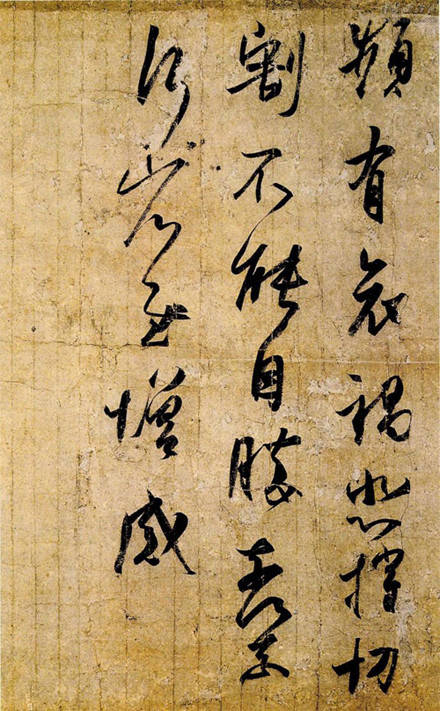 頻有哀禍悲摧切
割不能自勝奈何
省慰增感